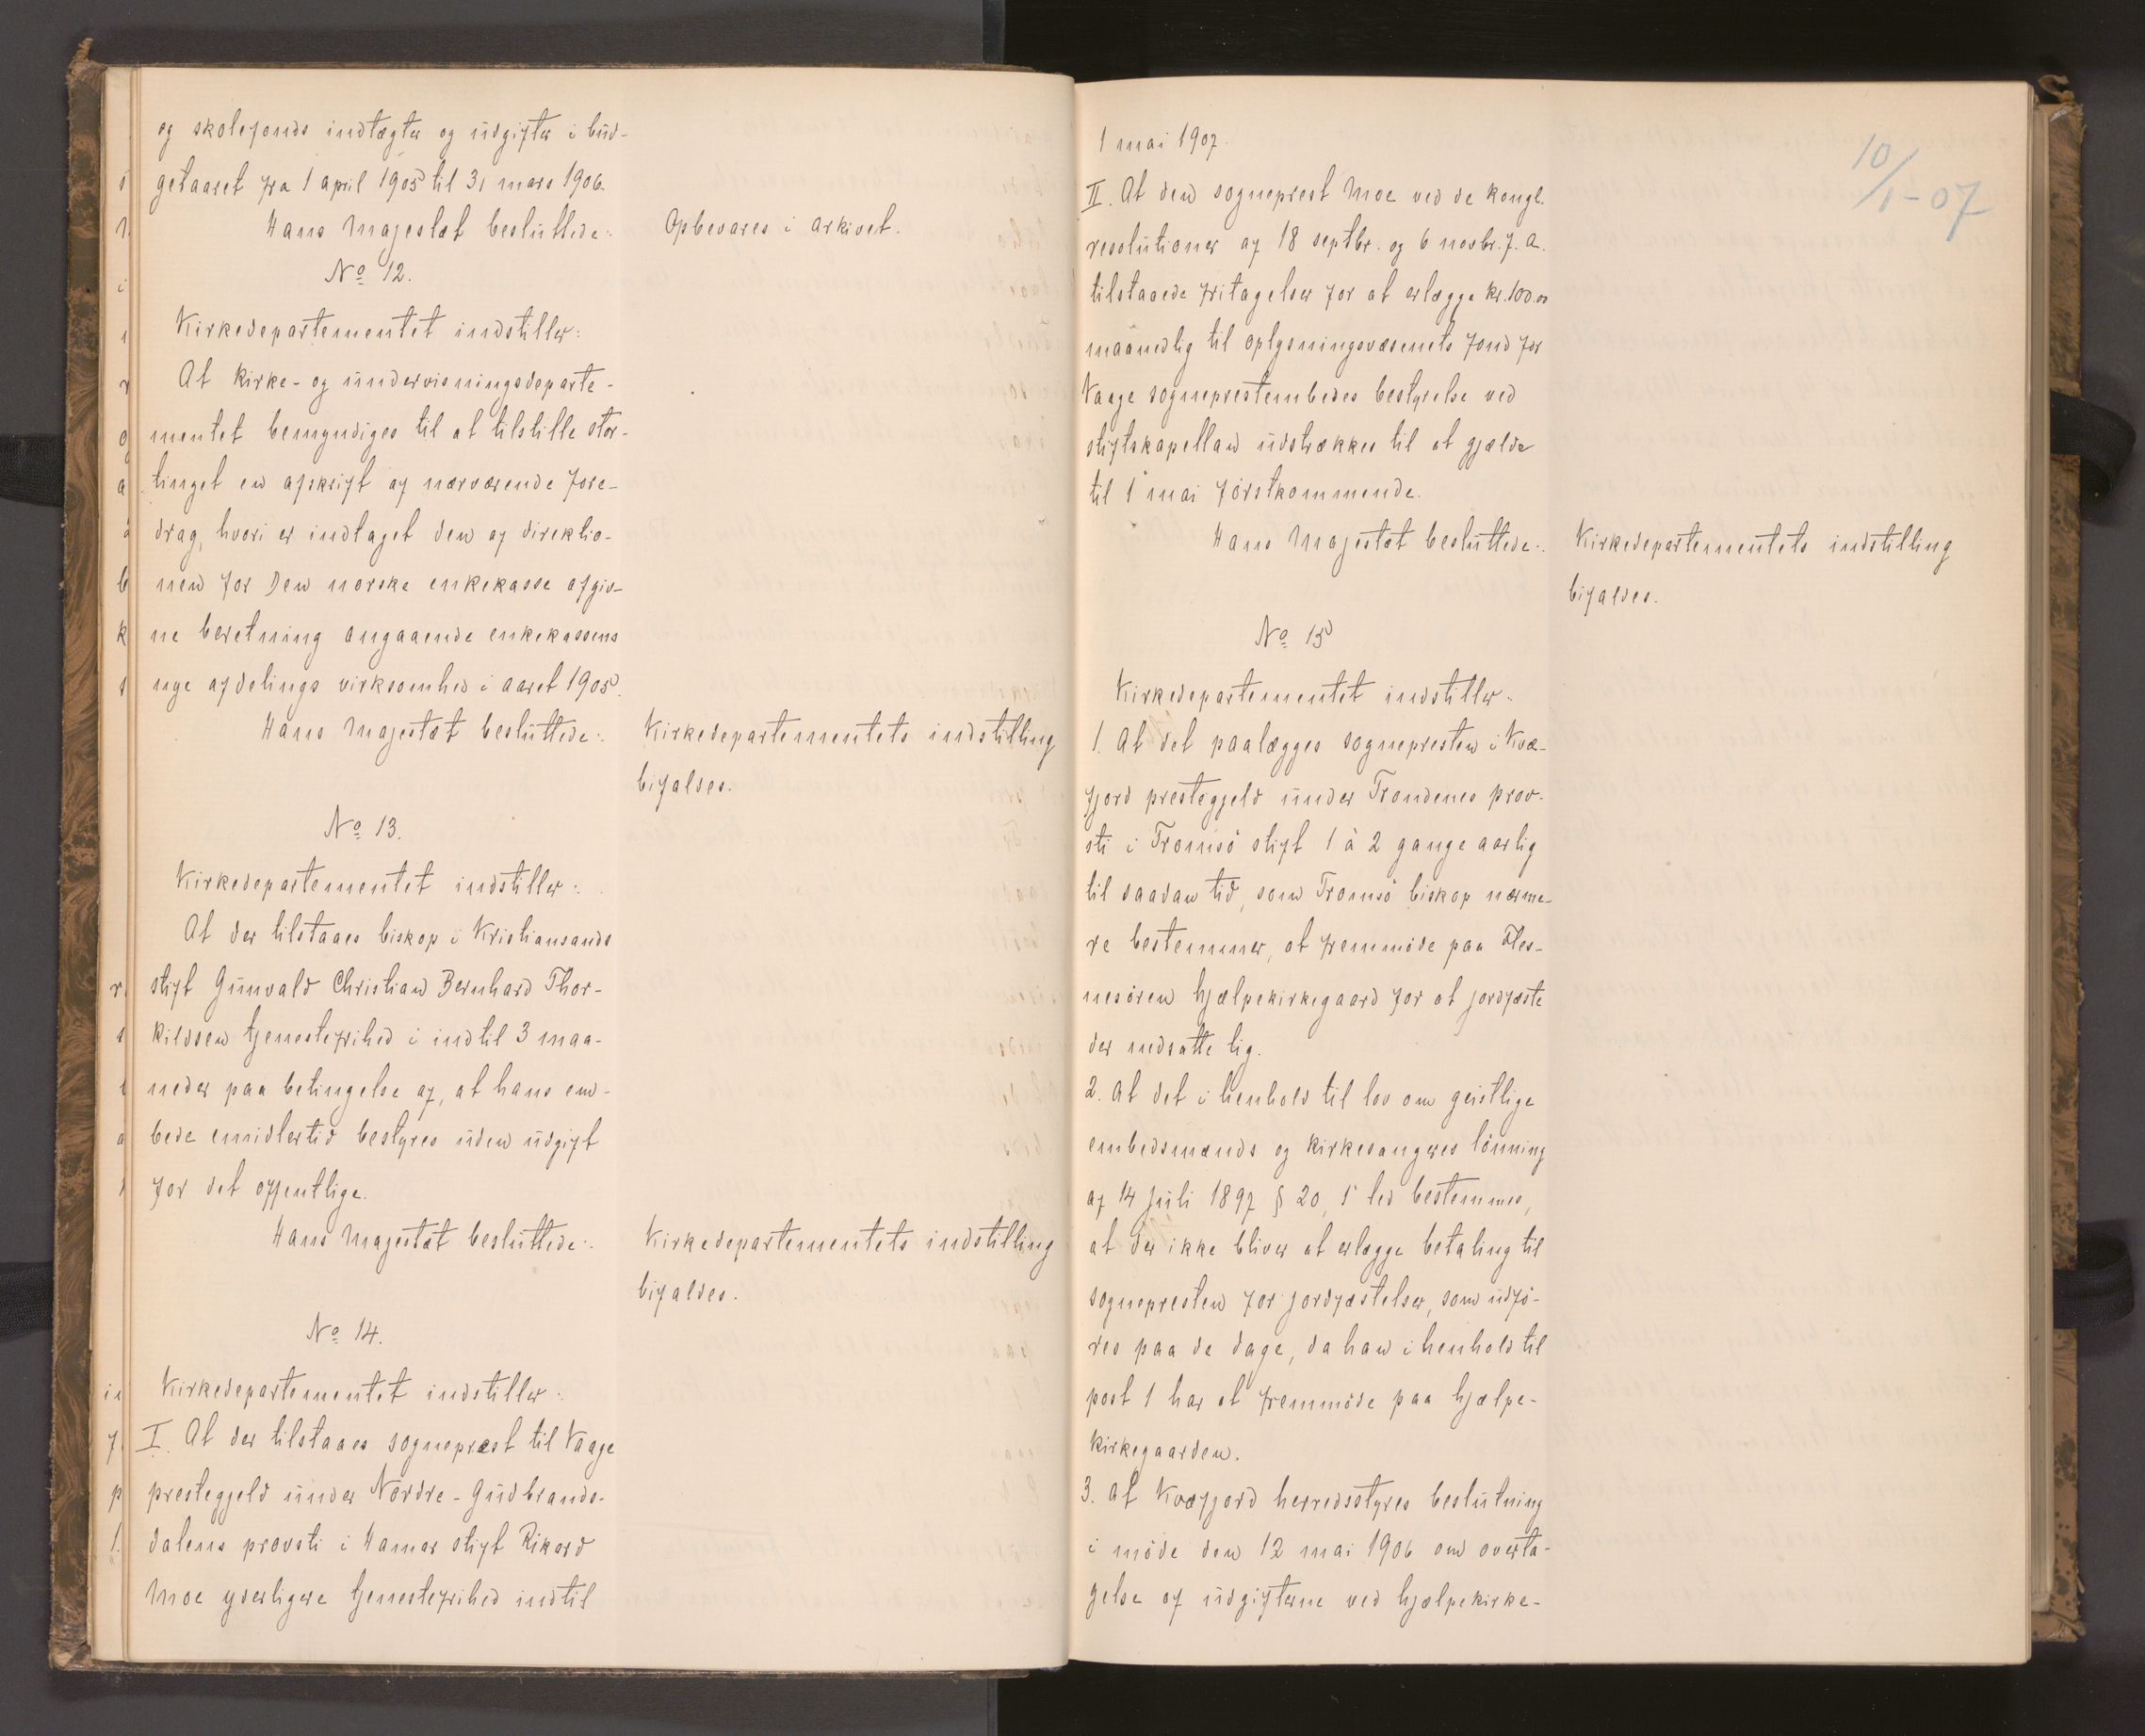 og skolefonds indtægter og udgifter i bud-
getaaret fra 1 april 1905 til 31 mars 1906.
Hans Majestæt besluttede:
Opbevares i arkivet.
No 12.
Kirkedepartementet indstiller:
At Kirke- og undervisningsdeparte-
mentet bemyndiges til at tilstille stor-
tinget en afskrift af nærværende fore-
drag, hvori er indtaget den af direktio-
nen for Den norske enkekasse afgiv-
ne beretning angaaende enkekassens
nye afdelings virksomhed i aaret 1905.
Hans Majestæt besluttede:
Kirkedepartementets indstilling
bifaldes.
No 13.
Kirkedepartementet indstiller:
At der tilstaaes biskop i Kristiansands
stift Gunvald Christian Bernhard Thor-
kildsen tjenestefrihed i indtil 3 maa-
neder paa betingelse af, at hans em-
bede imidlertid bestyres uden udgift
for det offentlige.
Hans Majestæt besluttede:
Kirkedepartementets indstilling
bifaldes.
No 14.
Kirkedepartementet indstiller:
I. At der tilstaaes sogneprest til Vaage
prestegjeld under Nordre-Gudbrands-
dalens provsti i Hamar stift Rikard
Moe yderligere tjenestefrihed indtil
10/1-07
1 mai 1907.
II. At den sogneprest Moe ved de kongl.
resolutioner af 18 septbr. og 6 novbr. f. a.
tilstaaede fritagelser for at erlægge kr. 100.00
maanedlig til oplysningsvæsenets fond for
Vaage sogneprestembedes bestyrelse ved
stiftskapellan udstrækkes til at gjælde
til 1 mai førstkommende.
Hans Majestæt besluttede:
Kirkedepartementets indstilling
bifaldes.
No 15
Kirkedepartementet indstiller:
1. At det paalægges sognepresten i Kvæ-
fjord prestegjeld under Trondenes prov-
sti i Tromsö stift 1 à 2 gange aarlig
til saadan tid, som Tromsö biskop nærme-
re bestemmer, at fremmöde paa Fles-
nesören hjælpekirkegaard for at jordfæste
der nedsatte lig.
2. At det i henhold til lov om geistlige
embedsmænds og kirkesangeres lönning
af 14 juli 1897 § 20, 5 led bestemmes,
at der ikke bliver at erlægge betaling til
sognepresten for jordfæstelser, som udfö-
res paa de dage, da han i henhold til
post 1 har at fremmöde paa hjælpe-
kirkegaarden.
3. At Kvæfjord herredsstyres beslutning
i möde den 12 mai 1906 om overta-
gelse af udgifterne ved hjælpekirke-